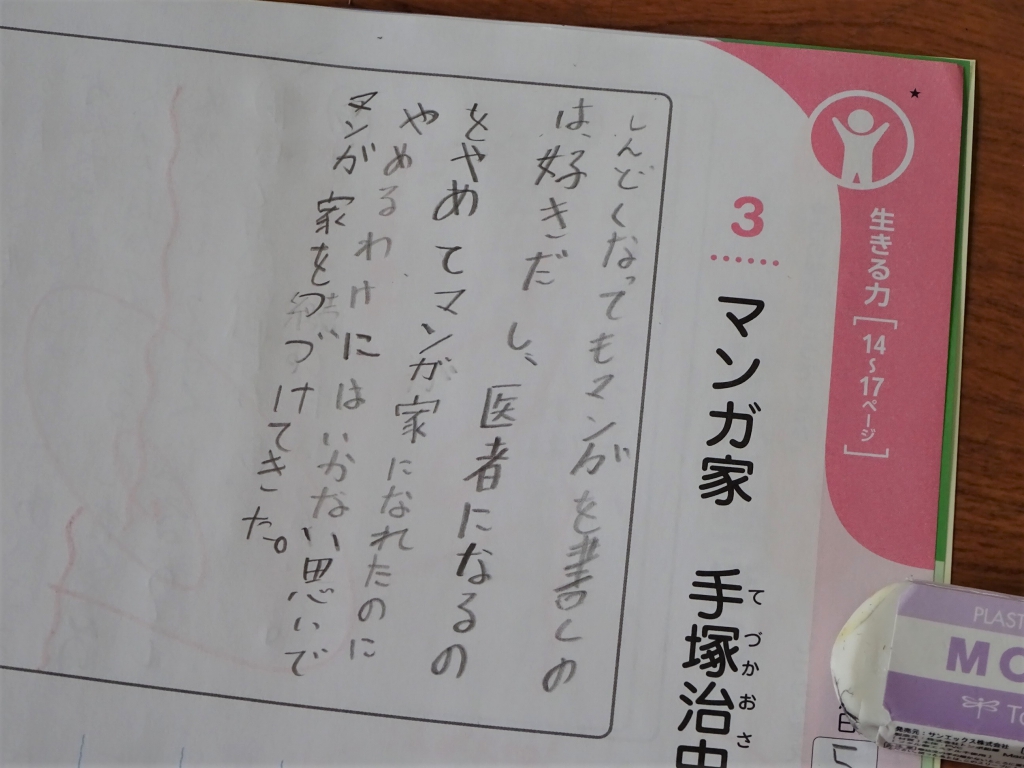 ★
生きる力[14～17ページ]
3
マンガ家 手塚治虫
てづかおさ
しんどくなってもマンガを書くの
は、好きだし、医者になるの
をやめてマンガ家になれたのに
やめるわけにはいかない思いで
マンガ家をつづけてきた。
5
PLAST
MO
発売元:サンエックス株式会社